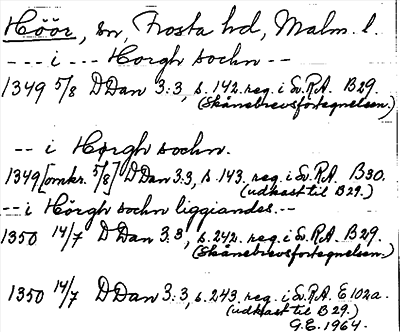 Höör, sn, Frosta hd, Malm. l.
--- i --- Horgh sochn --
1349 5/8 DDan 3:3, s. 142. reg. i Sv. R.A. B 29.
(Skånebrevsförtegnelsen.)
-- i Horgh sochn.
1349 [omkr. 5/8] DDan 3:3, s. 143. reg. i Sv. R.A. B 30.
(udkast til B 29.)
-- i Hörgh sochn liggiandes. --
1350 14/7 DDan 3:3, s. 242. reg. i Sv. R.A. B 29.
(Skånebrevsfortegnelsen.)
1350 14/7 DDan 3:3, s. 243. reg. i Sv. R.A. E 102a.
(udkast til B 29.)
G.E. 1964.